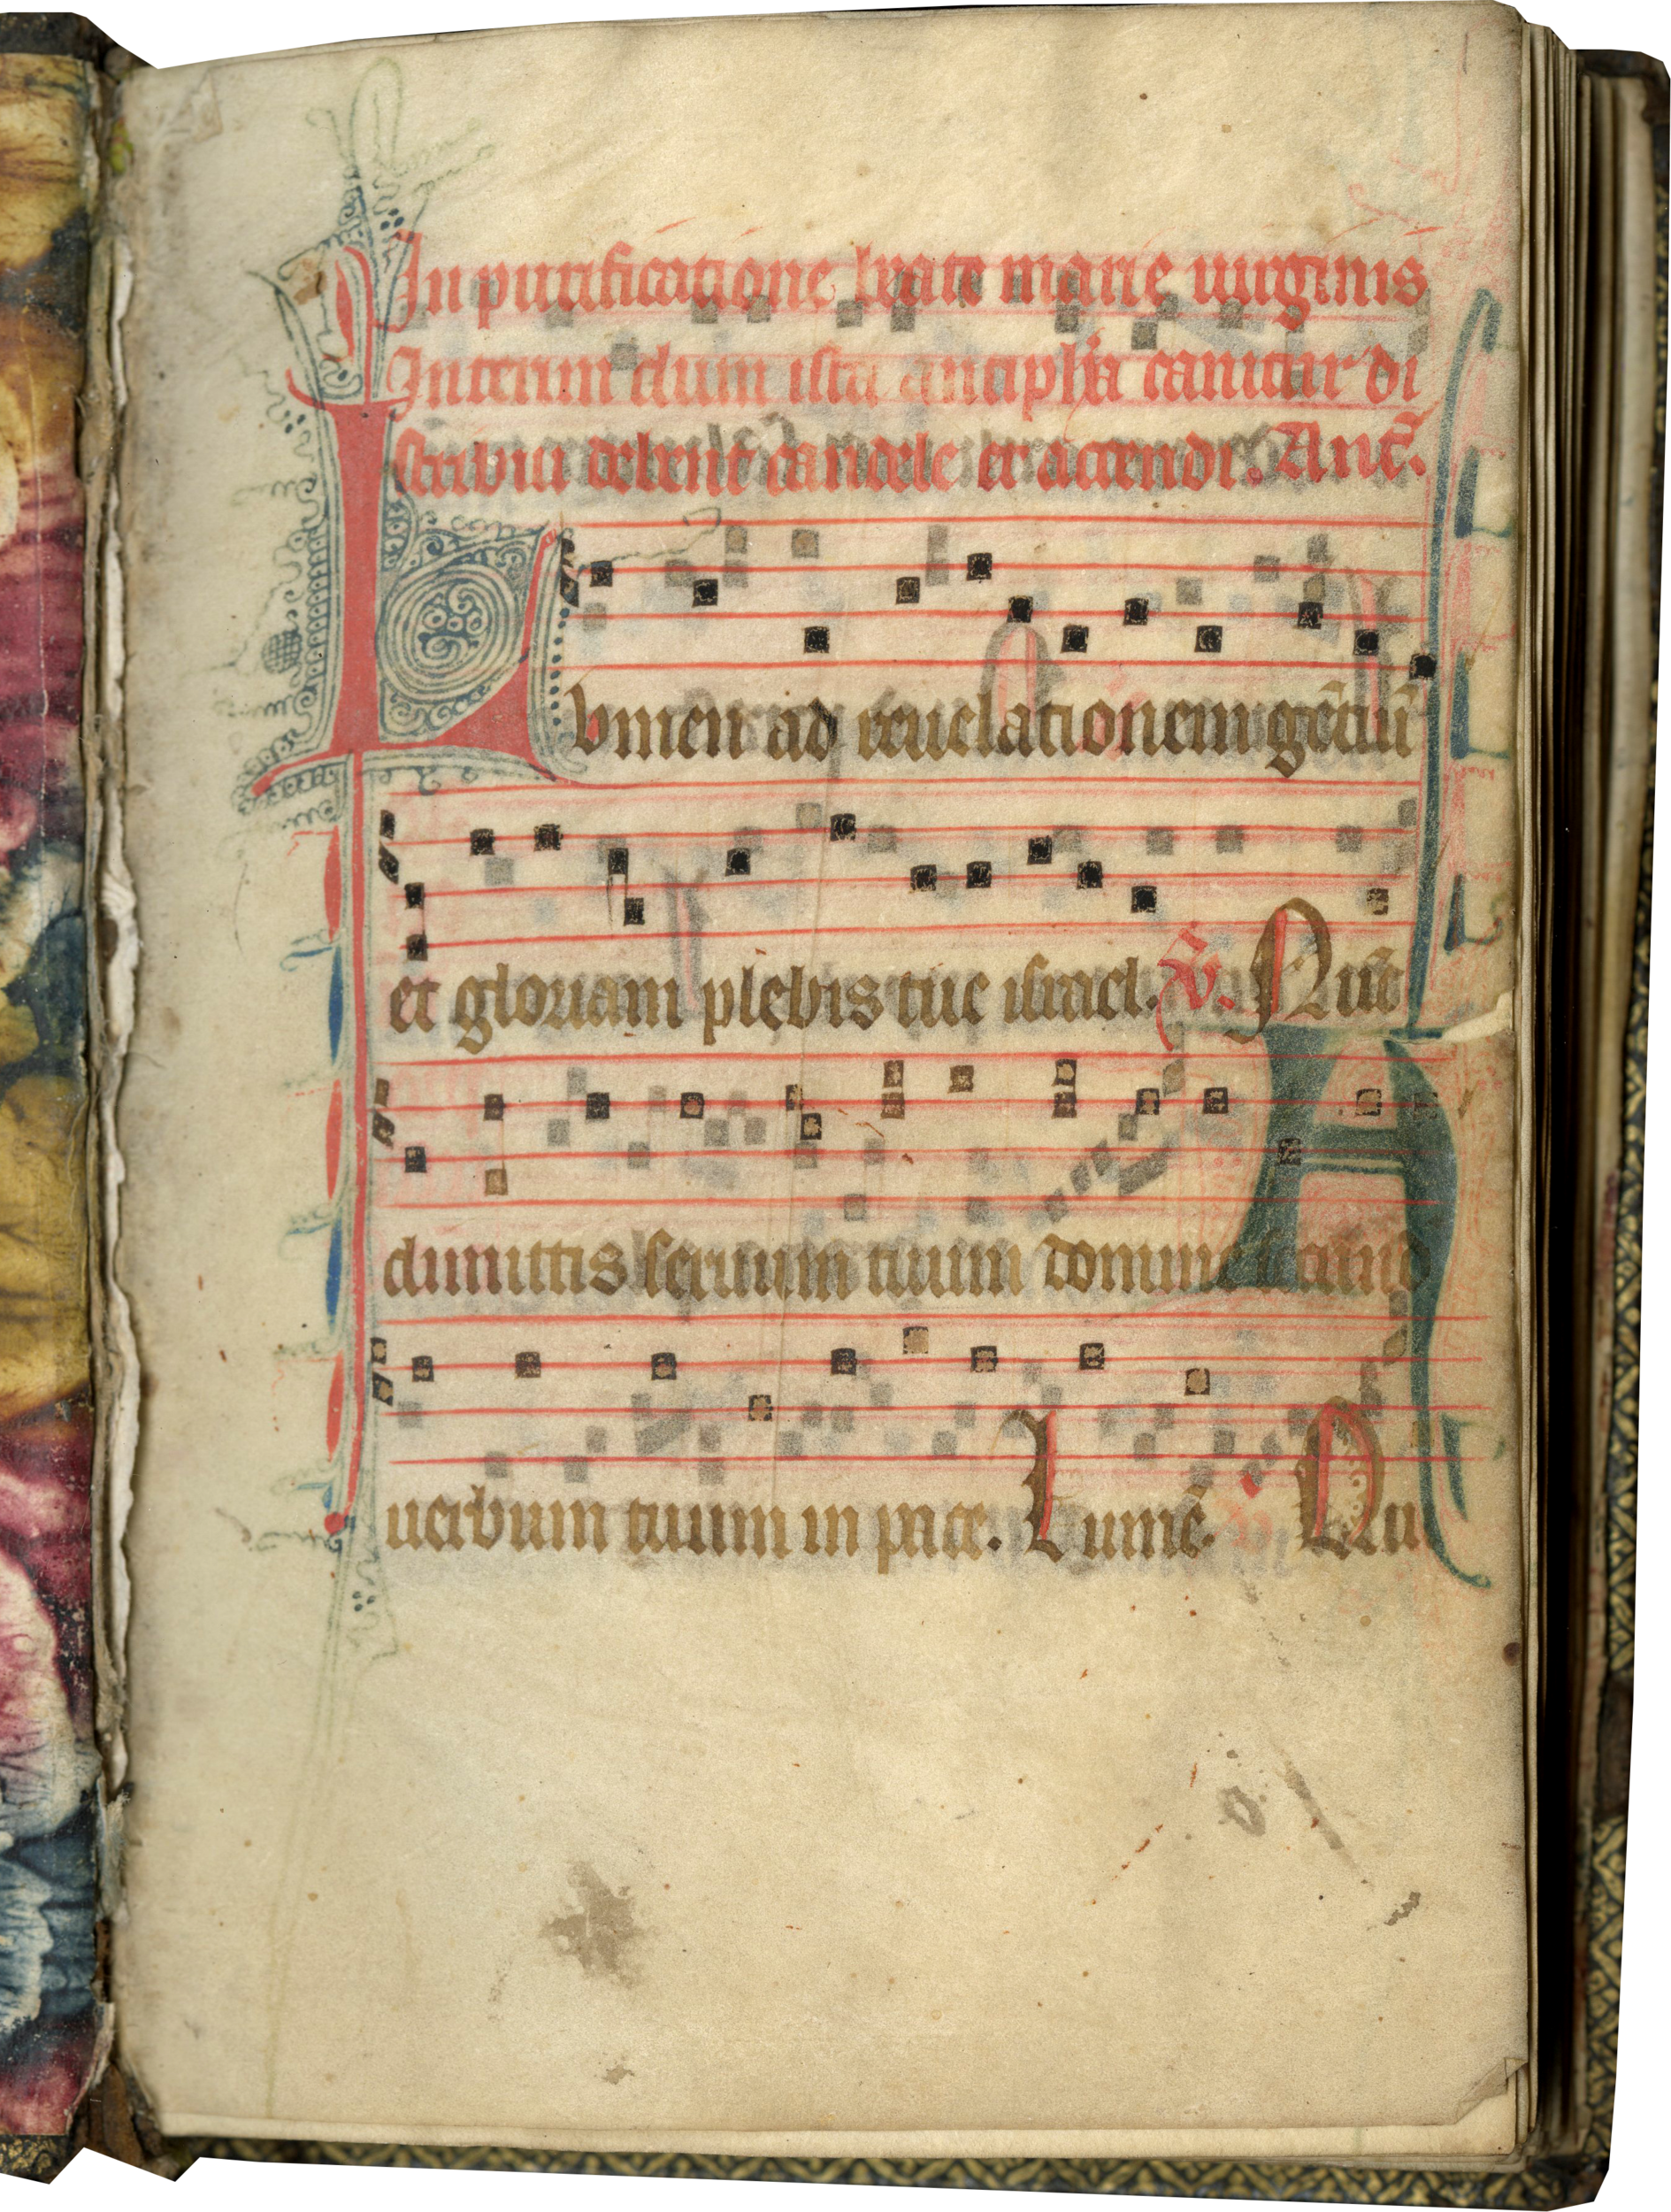 In purificatione beate marie uirginis
Interim dum ista antiph'a canitur di
stribui debent candele et accendi. Añt.
Lvmen ad reuelationem gētiū
et gloriam plebis tue israel. V. Nūc
dimittis seruum tuum domine
uerbum tuum in pace. Lumē. Nu